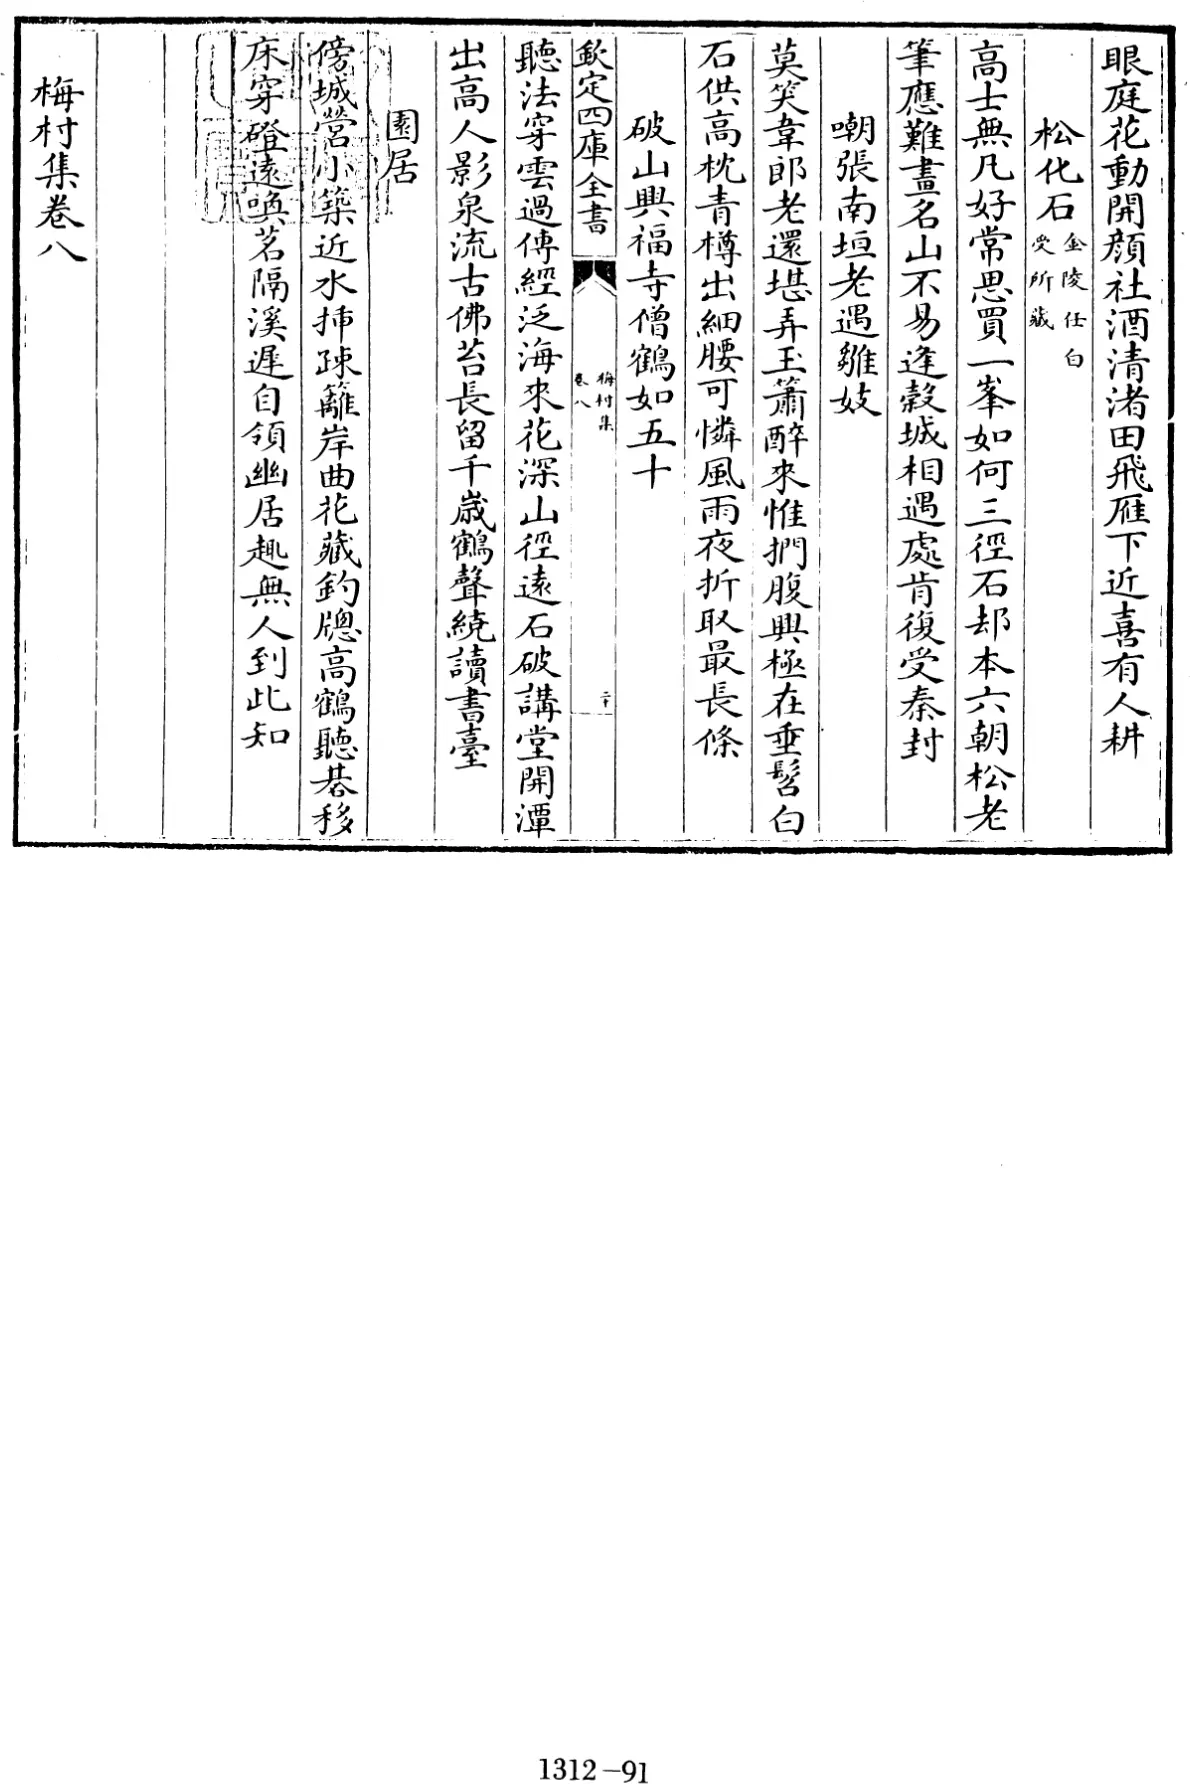 眼庭花動開顔社酒清渚田飛雁下近喜有人耕
松化石金陵任白受所藏
高士無凡好常思買一峯如何三徑石却本六朝松老
筆應難畫名山不易逢穀城相遇處肯復受秦封
嘲張南垣老遇雛妓
莫笑韋郎老還堪弄玉簫醉來惟捫腹興極在垂髫白
石供高枕青樽出細腰可憐風雨夜折取最長條
破山興福寺僧鶴如五十
欽定四庫全書
梅村集
卷八
二十
聽法穿雲過傳經泛海來花深山徑遠石破講堂開潭
出高人影泉流古佛苔長留千歲鶴聲繞讀書臺
園居
傍城營小築近水揷疎籬岸曲花藏釣牕高鶴聽棊移
床穿磴遠喚茗隔溪遲自領幽居趣無人到此知
梅村集卷八
1312-91